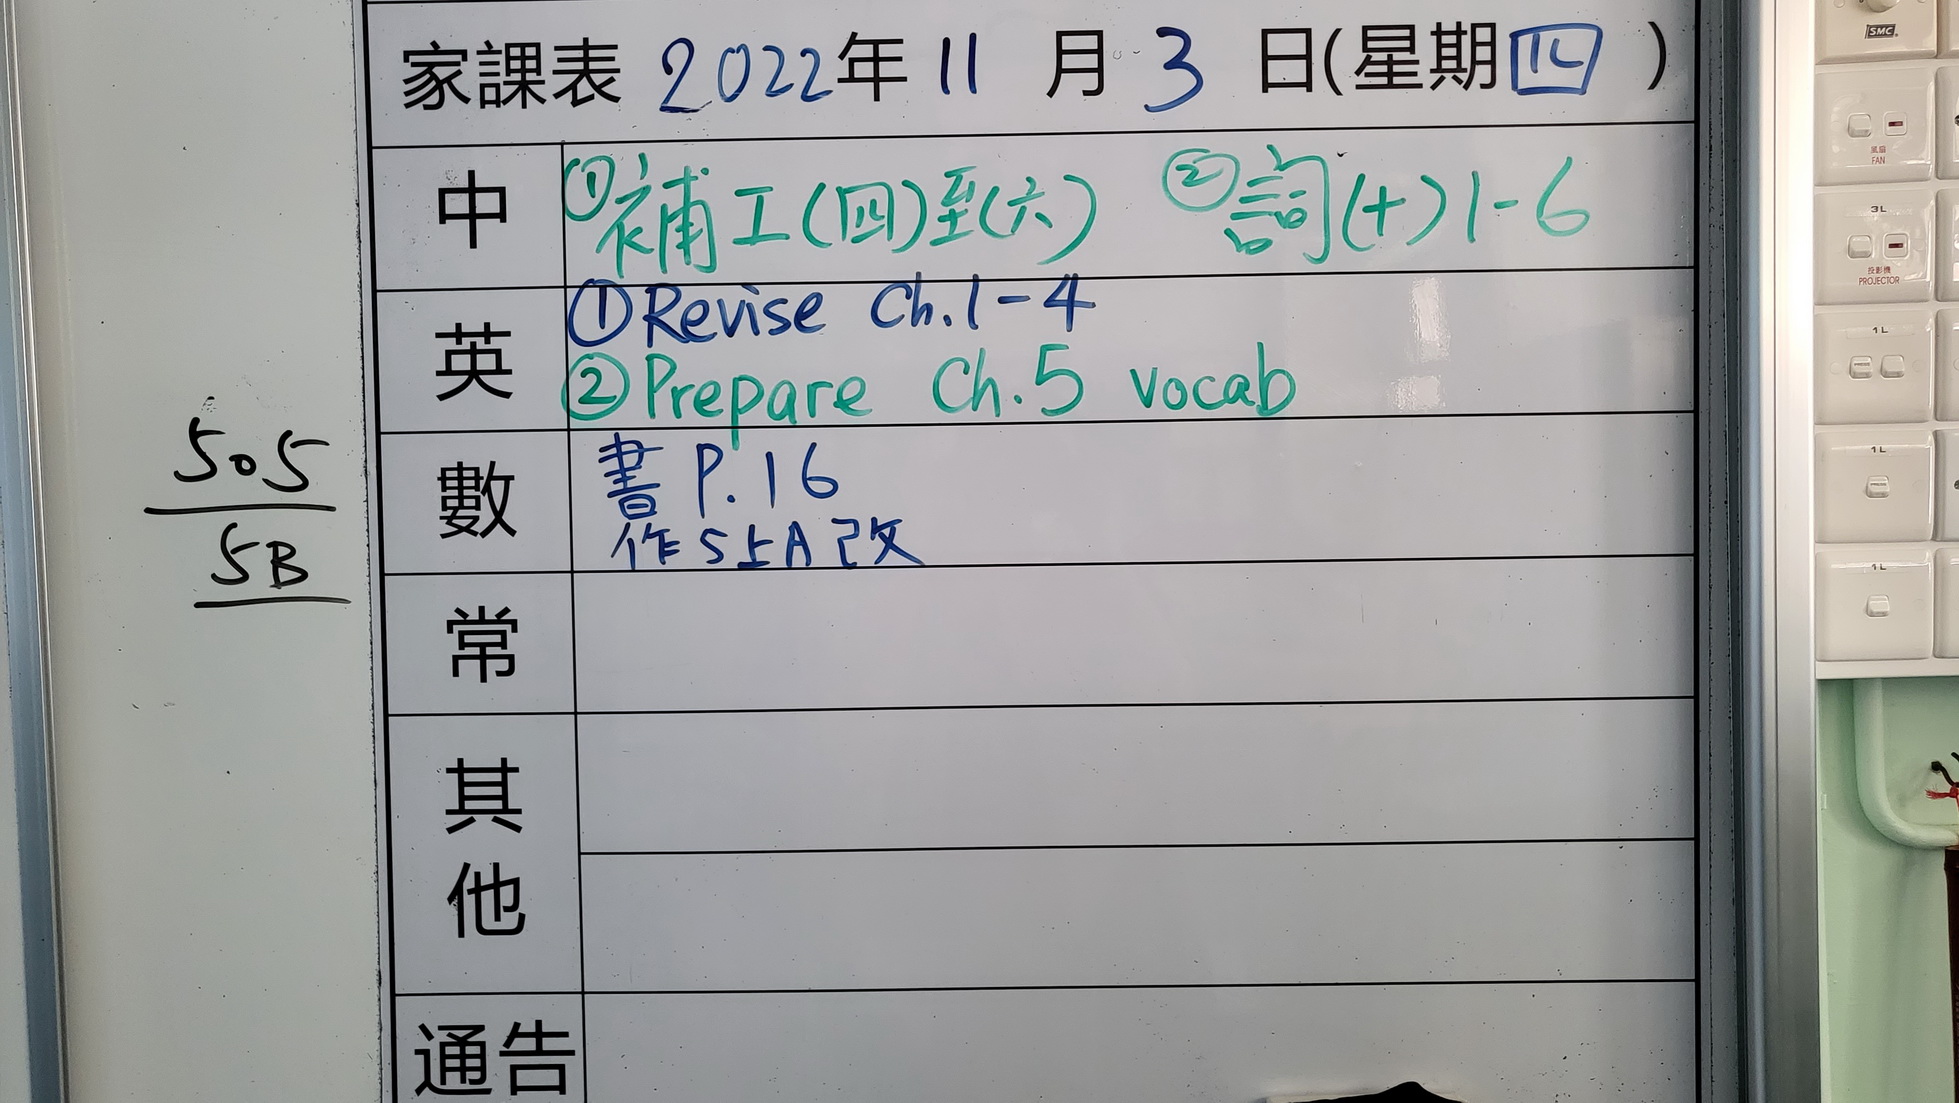 家課表 2022年 11 月 3 日(星期四)
中 ①補工(四)至(六) ②詞(十)1-6
英 ①Revise Ch.1-4
②Prepare Ch.5 vocab
數 書 P.16
作5上A改
常
其他
通告
505
5B
SMC
風扇
FAN
3L
投影機
PROJECTOR
1L
1L
1L